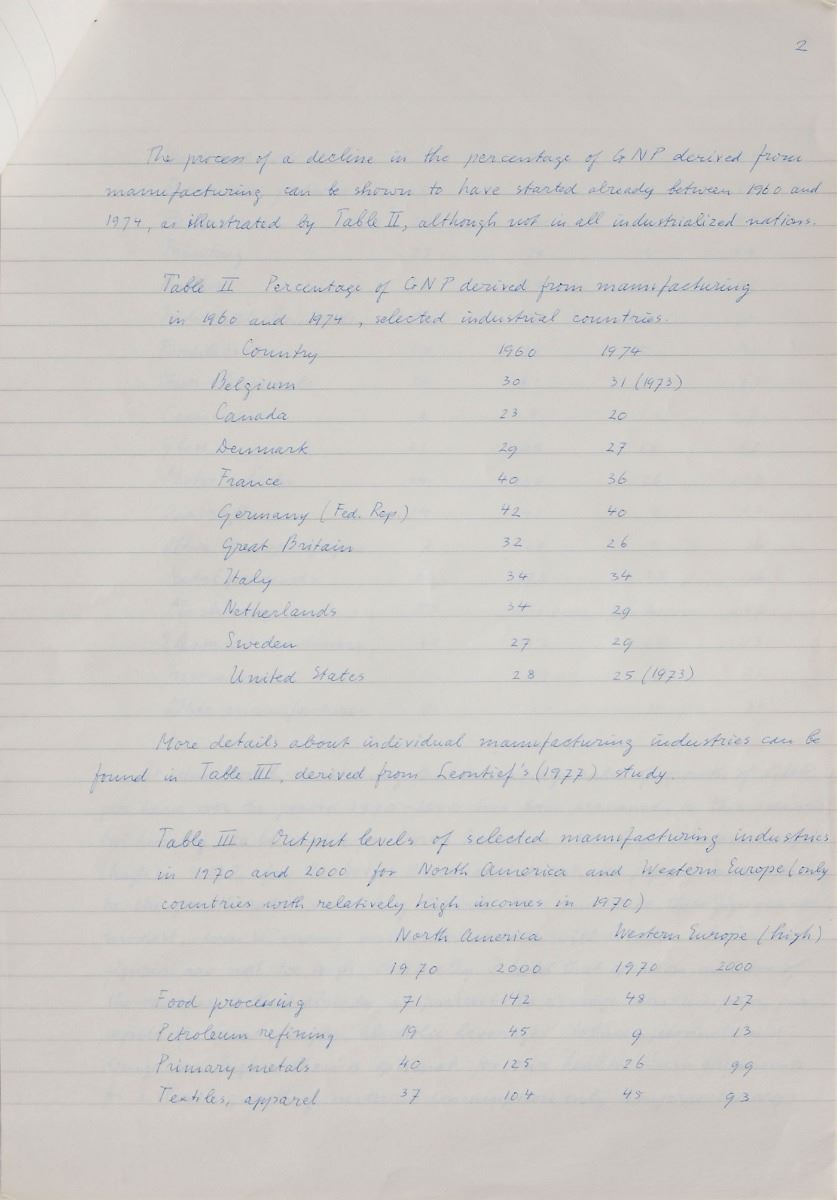 2
The process of a decline in the percentage of GNP derived from
manufacturing can be shown to have started already between 1960 and
1974, as illustrated by Table II, although not in all industrialized nations.
Table II Percentage of GNP derived from manufacturing
in 1960 and 1974, selected industrial countries.
Country 1960 1974
Belgium 30 31 (1973)
Canada 23 20
Denmark 29 27
France 40 36
Germany (Fed. Rep.) 42 40
Great Britain 32 26
Italy 34 34
Netherlands 34 29
Sweden 27 29
United States 28 25 (1973)
More details about individual manufacturing industries can be
found in Table III, derived from Leontief's (1977) study.
Table III Output levels of selected manufacturing industries
in 1970 and 2000 for North America and Western Europe (only
countries with relatively high incomes in 1970)
North America Western Europe (high)
1970 2000 1970 2000
Food processing 71 142 48 127
Petroleum refining 19 45 9 13
Primary metals 40 125 26 99
Textiles, apparel 37 104 45 93